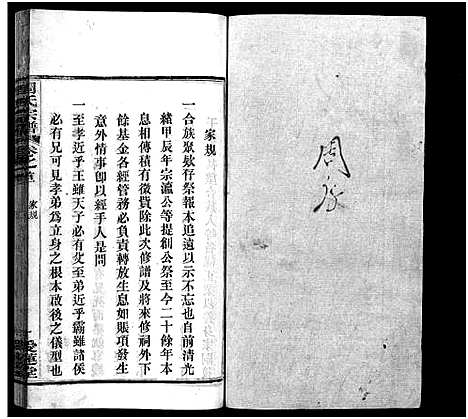 周
家規
一合族聚欵仔祭報本追遠示不忘也自前清光
緒甲辰年宗瀛公等提創公祭至今二十餘年本
息相傳積有徵費除此次修譜及將來修祠外下
餘基金各經管務必負責轉放生息如賬項發生
意外情事卽以經手人是問
一至孝近乎王雖天子必有父至弟近乎霸雖諸侯
必有兄可見孝弟為立身之根本啟後之儀型也
周氏宗譜
卷之首
家規
愛蓮堂